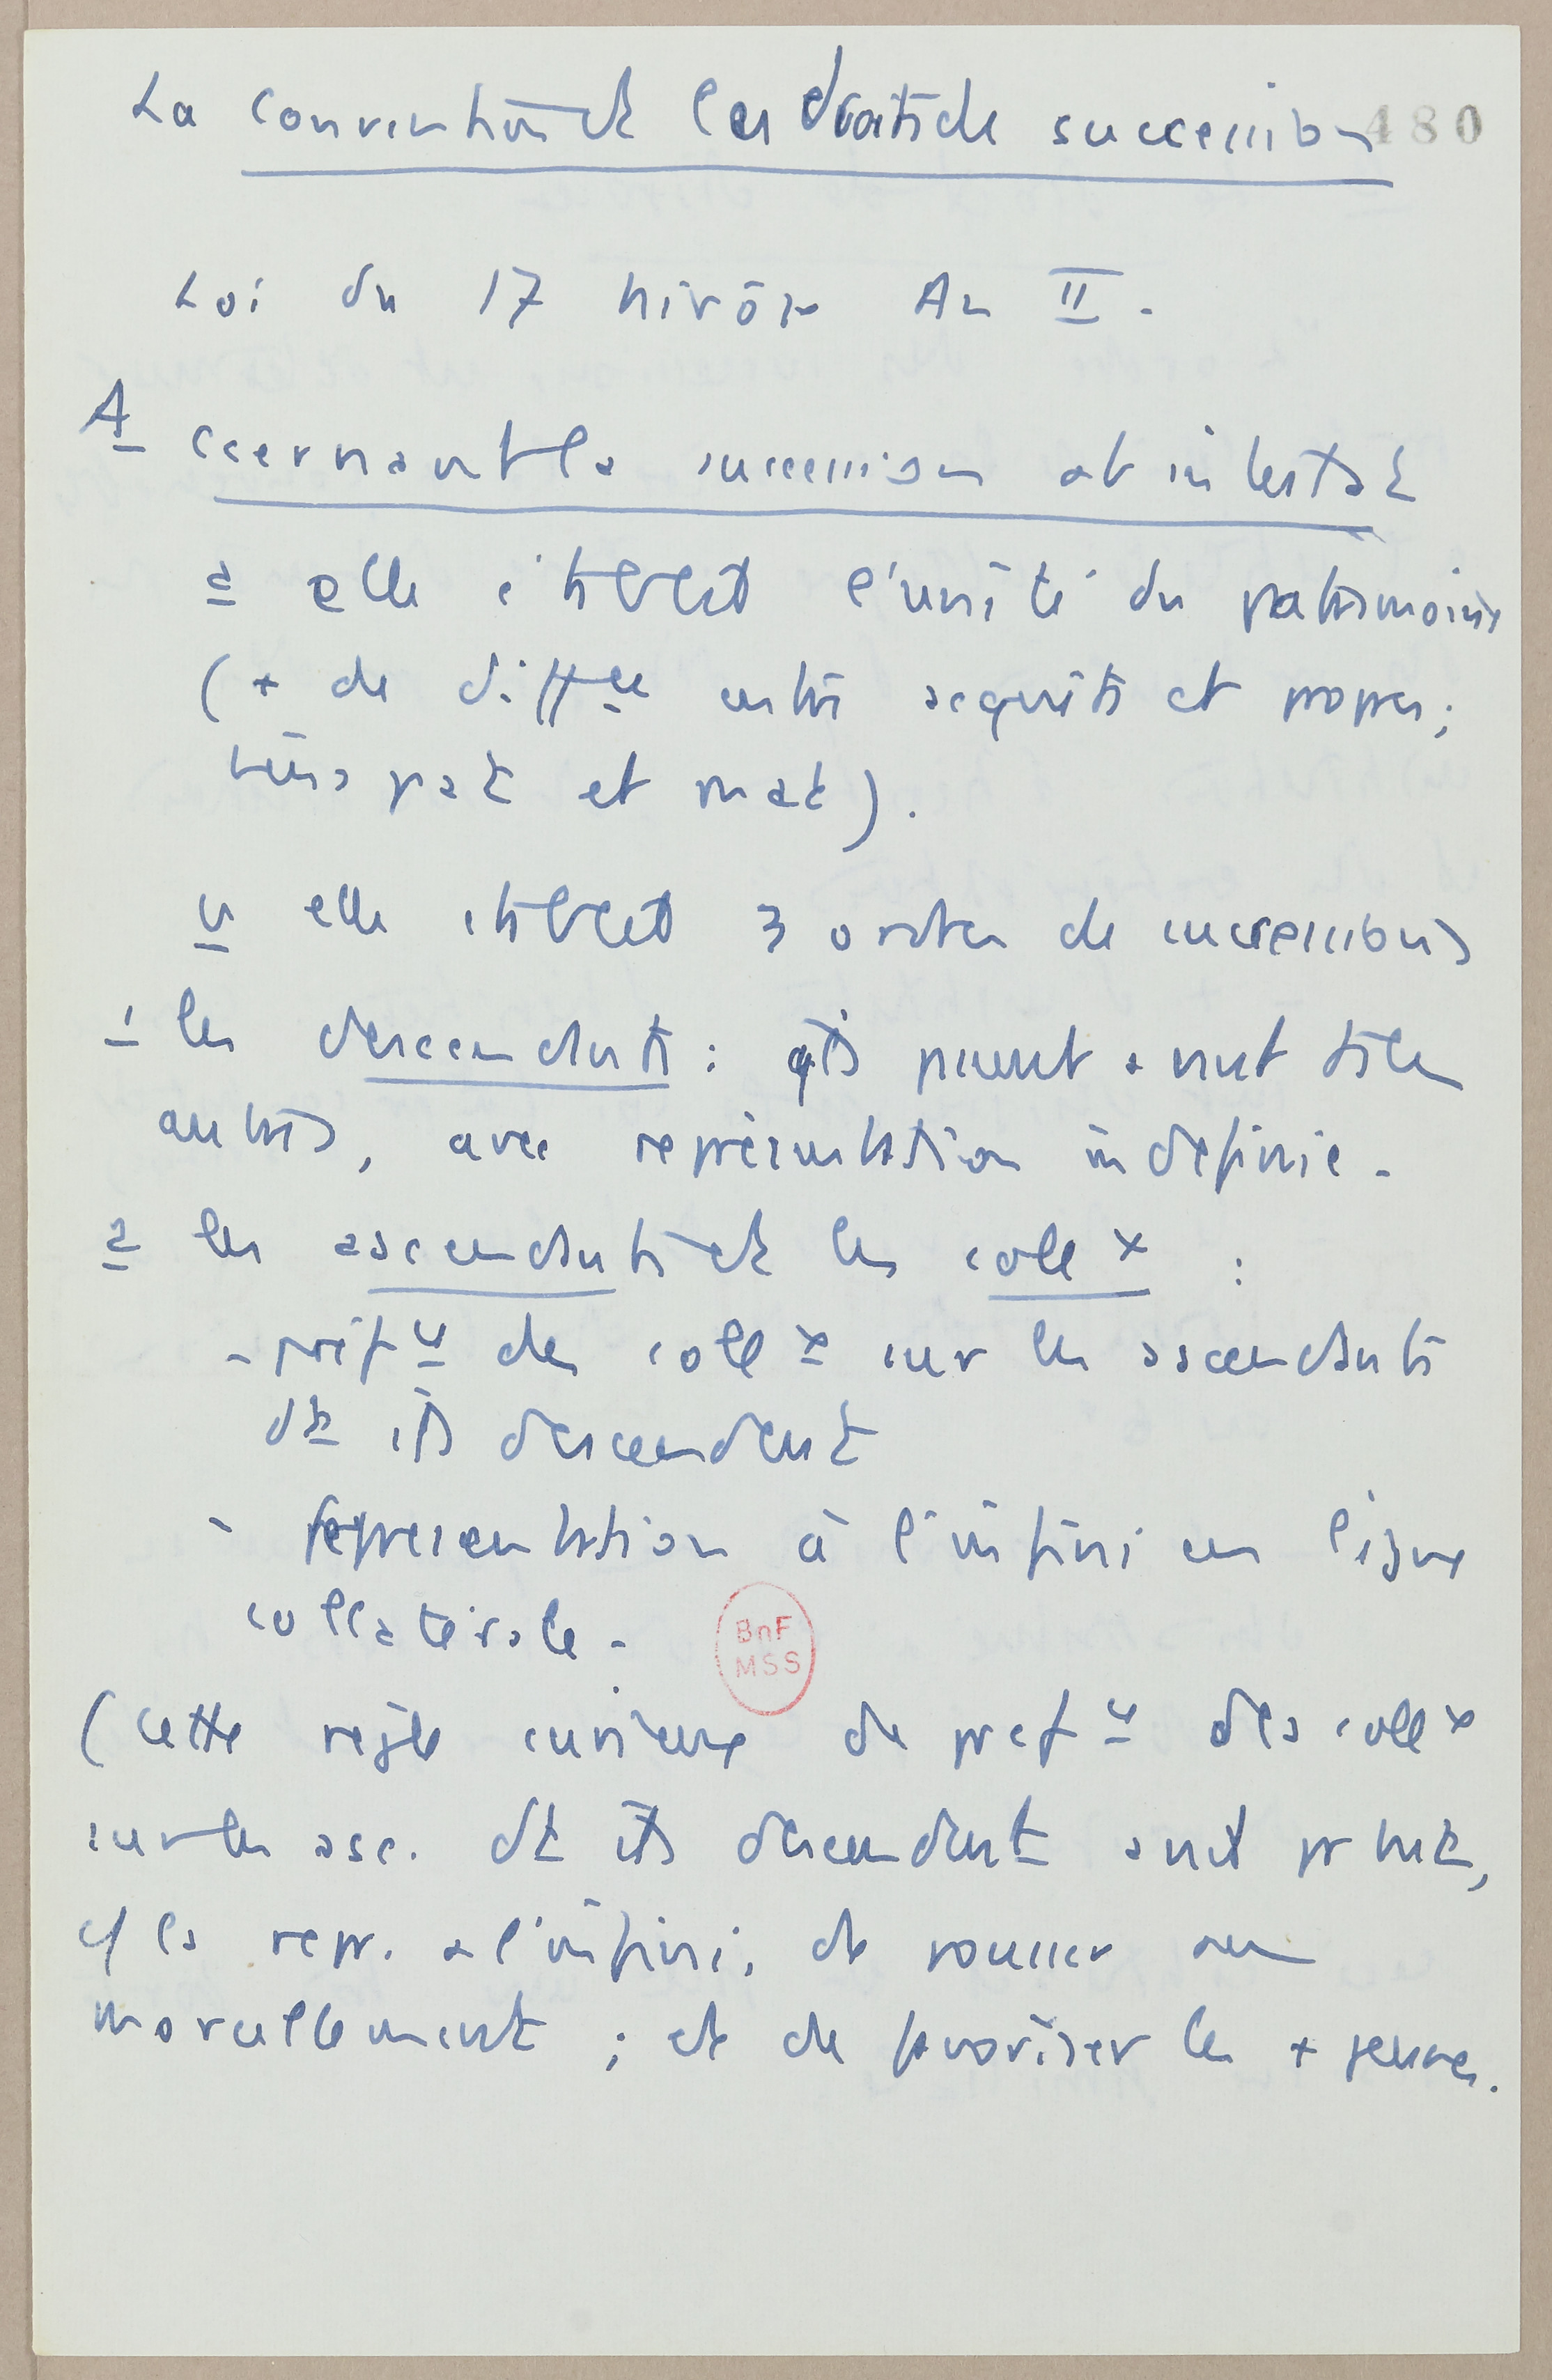 La Convention et les droits de succession 480
Loi du 17 nivôse An II.
A ccernant la succession ab intestat
a elle établit l'unité du patrimoine
(+ de diffce entre acquêts et propres;
biens pat et mat).
b elle établit 3 ordres de successions
1 les descendants : ils priment tous les
autres, avec représentation indéfinie.
2 les ascendants et les collx :
- préfce des collx sur les ascendants
dt ils descendent
- représentation à l'infini en ligne
collatérale.
BnF
MSS
(cette règle curieuse de préfce des collx
sur les asc. dt ils descendent avait pr but,
cf la repr. à l'infini, de pousser au
morcellement ; et de favoriser les + jeunes.